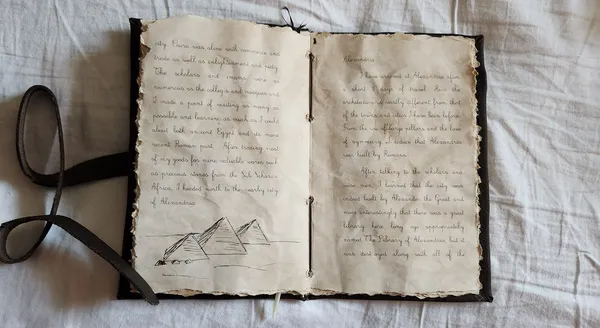 city. Cairo was alive with commerce and
trade as well as enlightenment and piety.
The scholars and imams were as
numerous as the colleges and mosques and
I made a point of meeting as many as
possible and learning as much as I could
about both ancient Egypt and its more
recent Roman past. After trading most
of my goods for more valuable wares such
as precious stones from the Sub Saharan
Africa, I headed north to the nearby city
of Alexandria
Alexandria
I have arrived at Alexandria after
a short 3 days of travel. Here the
architecture is vastly different from that
of the towns and cities I have been before.
From the use of large columns and the
of symmetry I deduce that Alexandria
was built by Romans.
After talking to the scholars and
wise men, I learned that the city was
indeed built by Alexander the Great and
more interestingly that there was a great
library here long ago appropriately
named The Library of Alexandria but it
was destroyed along with all of the